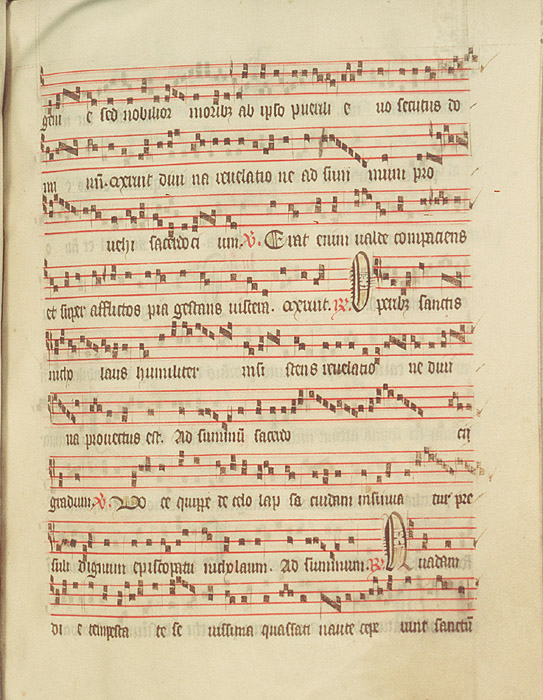 geni e sed nobilior moribz ab ipso puerili e uo secutus do
mi nū. Oxerunt diui na reuelatio ne ad sum mum pro
uehi sacerdoci um. V. Erat enim ualde compaciens
et super afflictos pia gestans uissera. Oxerunt. R. O peribz sanctis
nicho laus humiliter insi stens reuelatio ne diui
na prouectus est. Ad summū sacerdo cij
gradum. V. Uo ce quippe de celo lap sa cuidam insinua tur pre
suli dignum episcopatu nicholaum. Ad summum. R. Q uadam
di e tempesta te se uissima quassati naute cepe runt sanctū